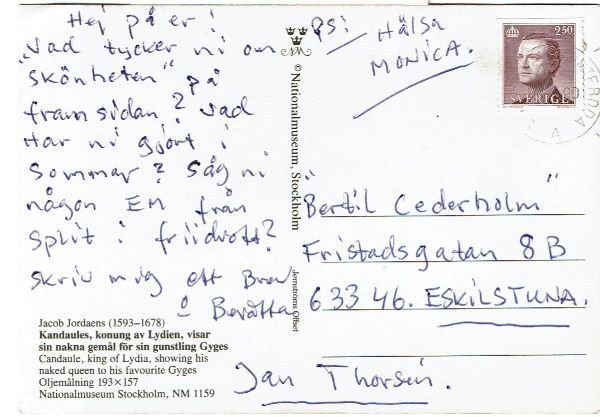 Hej på er!
"Vad tycker ni om
skönheten" på
framsidan? Vad
Har ni gjort i
Sommar? Såg ni
någon EM från
Split i friidrott?
Skriv mig ett Brev
o Berätta
PS: Hälsa
MONICA.
2.50
SVERIGE
© Nationalmuseum, Stockholm
Jernströms Offset
"Bertil Cederholm"
Fristadsgatan 8B
633 46. ESKILSTUNA.
Jan Thorsén.
Jacob Jordaens (1593–1678)
Kandaules, konung av Lydien, visar
sin nakna gemål för sin gunstling Gyges
Candaule, king of Lydia, showing his
naked queen to his favourite Gyges
Oljemålning 193×157
Nationalmuseum Stockholm, NM 1159